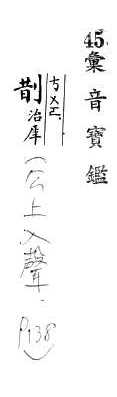 45.彙音寶鑑
ㄘㄨㄛˋ
剒治犀(公上入聲.P138)